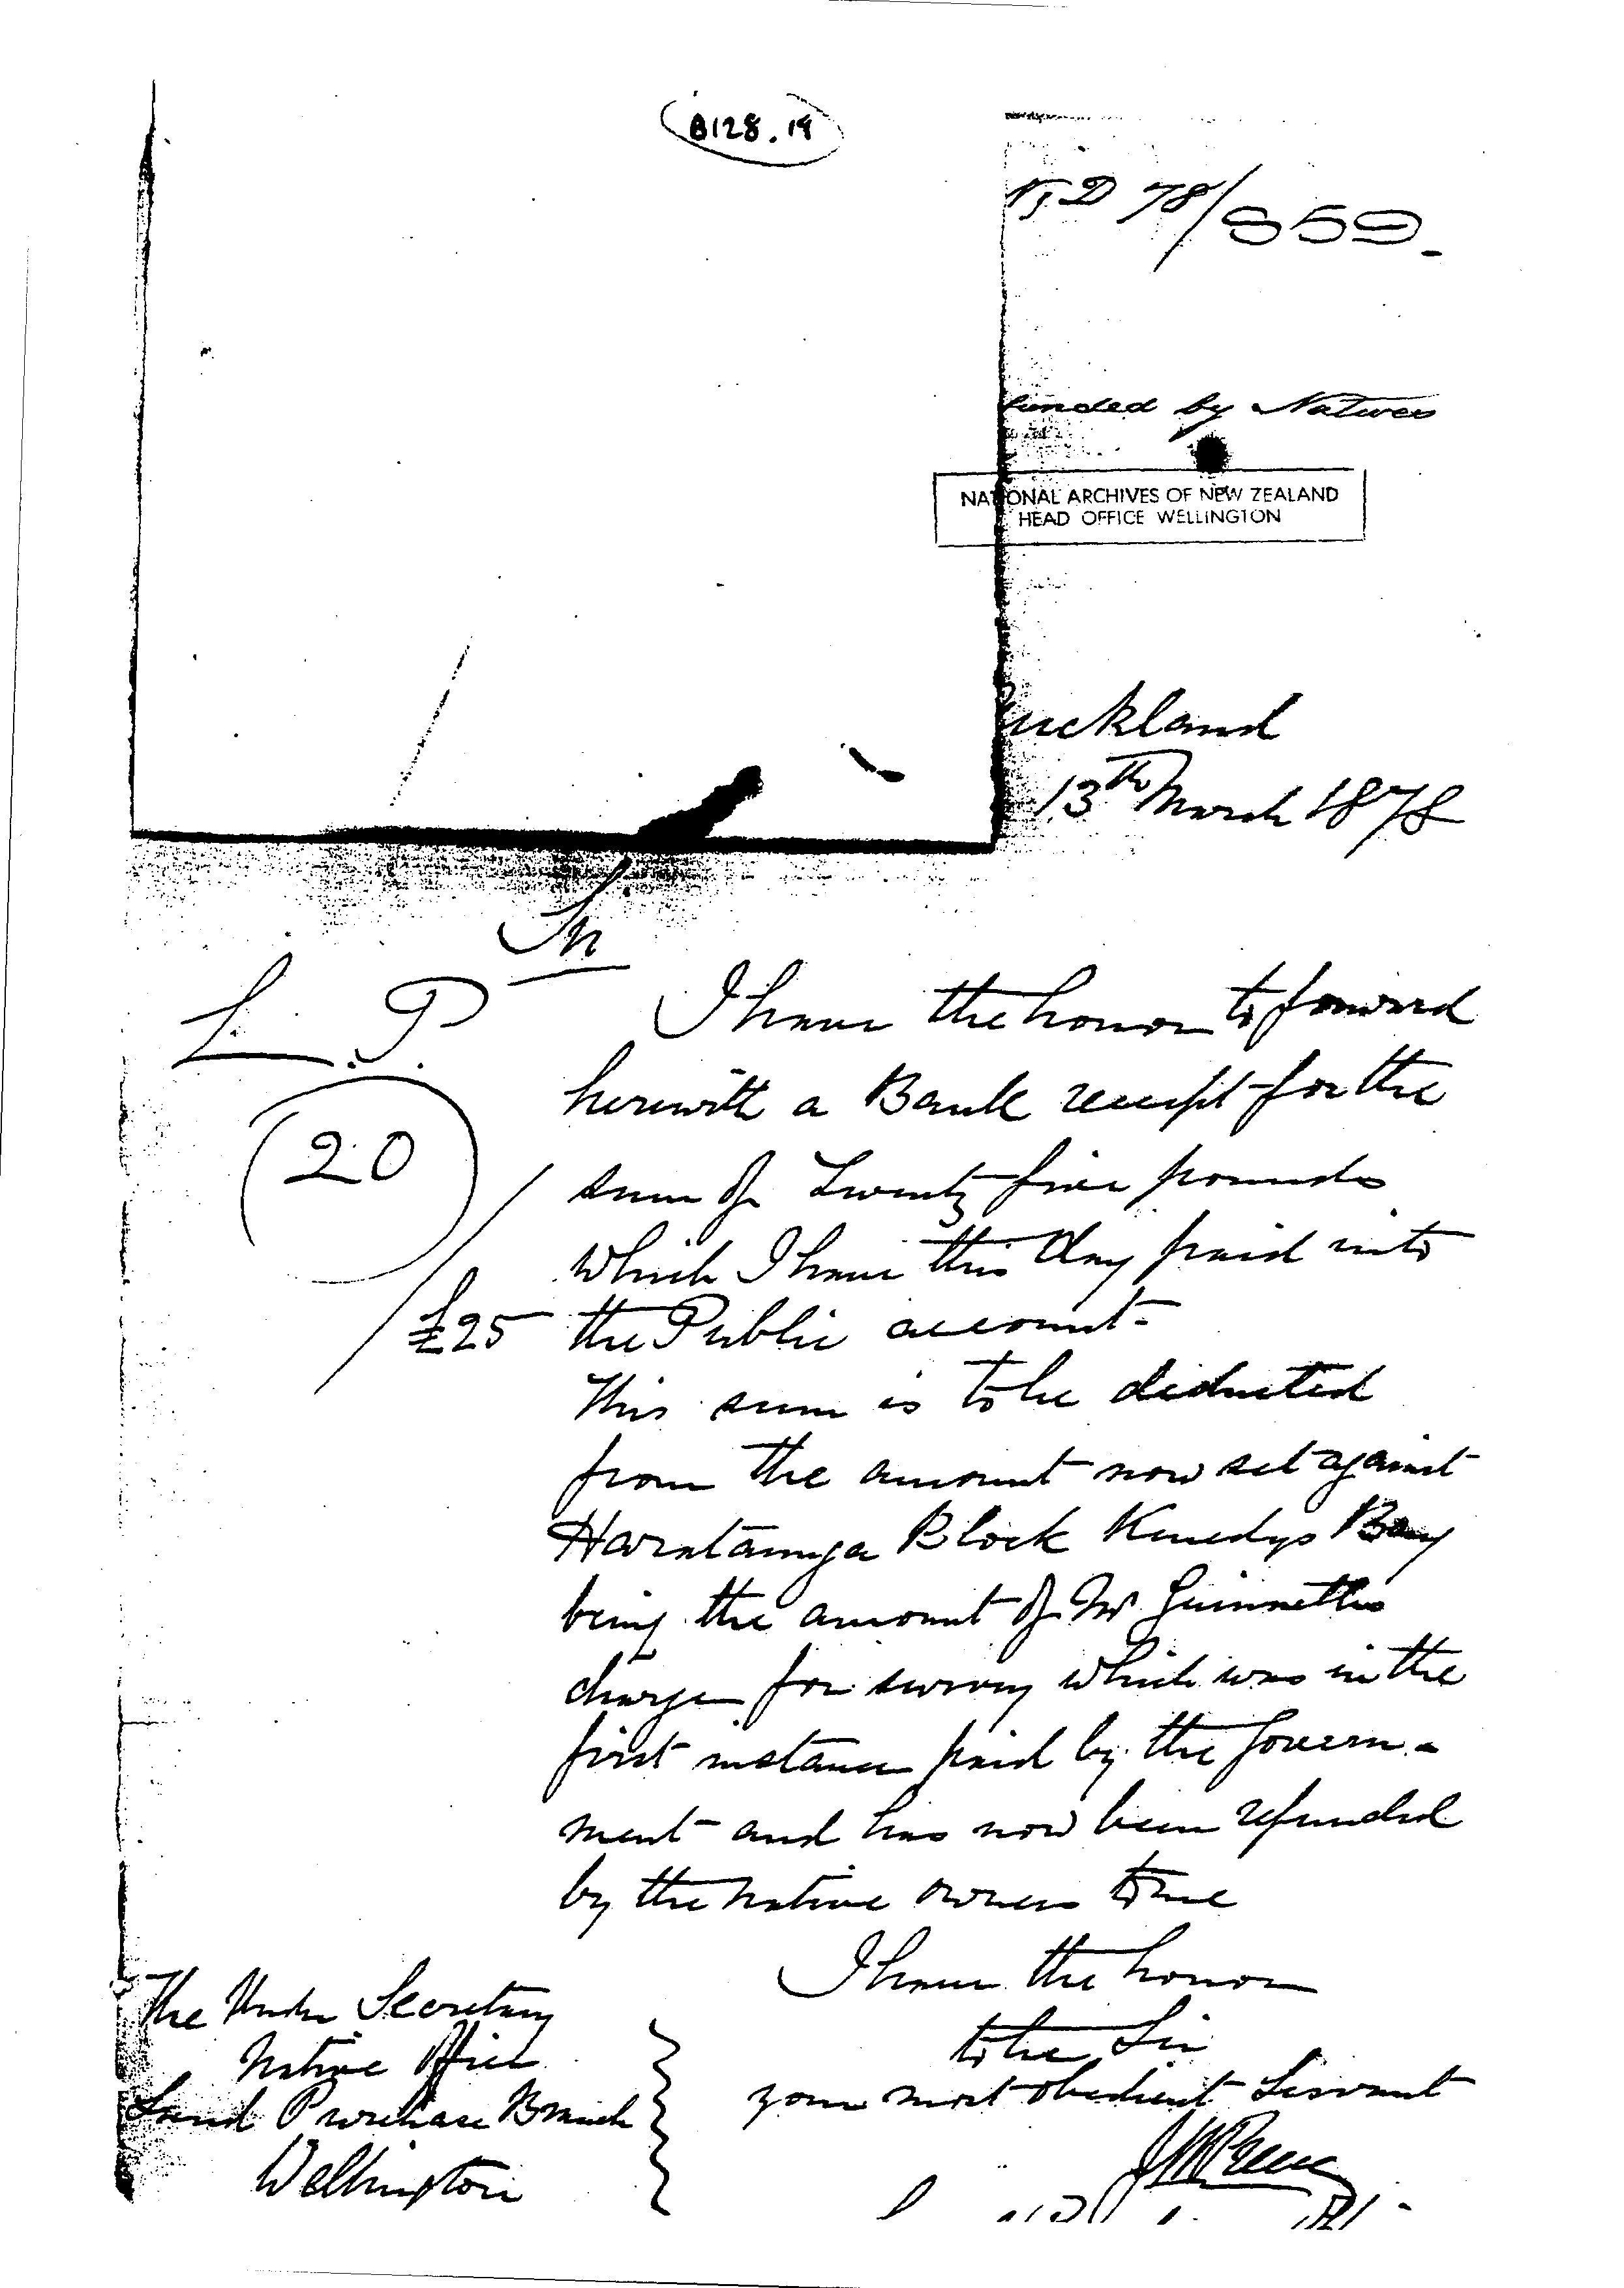 B128.19
N,D 78/859.
funded by Natives
NATIONAL ARCHIVES OF NEW ZEALAND
HEAD OFFICE WELLINGTON
uckland
13th March 1878
Sir
L. P.
I have the honor to forward
herewith a Bank receipt for the
20
sum of Twenty five pounds
which I have this day paid into
£25 the Public account-
This sum is to be deducted
from the amount now set against
Harataunga Block Kenedys Bay
being the amount of Mr Guinness
charge for survey which was in the
first instance paid by the Govern-
ment and has now been refunded
by the native owners to me
I have the honor
to be Sir
your most obedient Servant
The Under Secretary
Native Office
Land Purchase Branch
Wellington